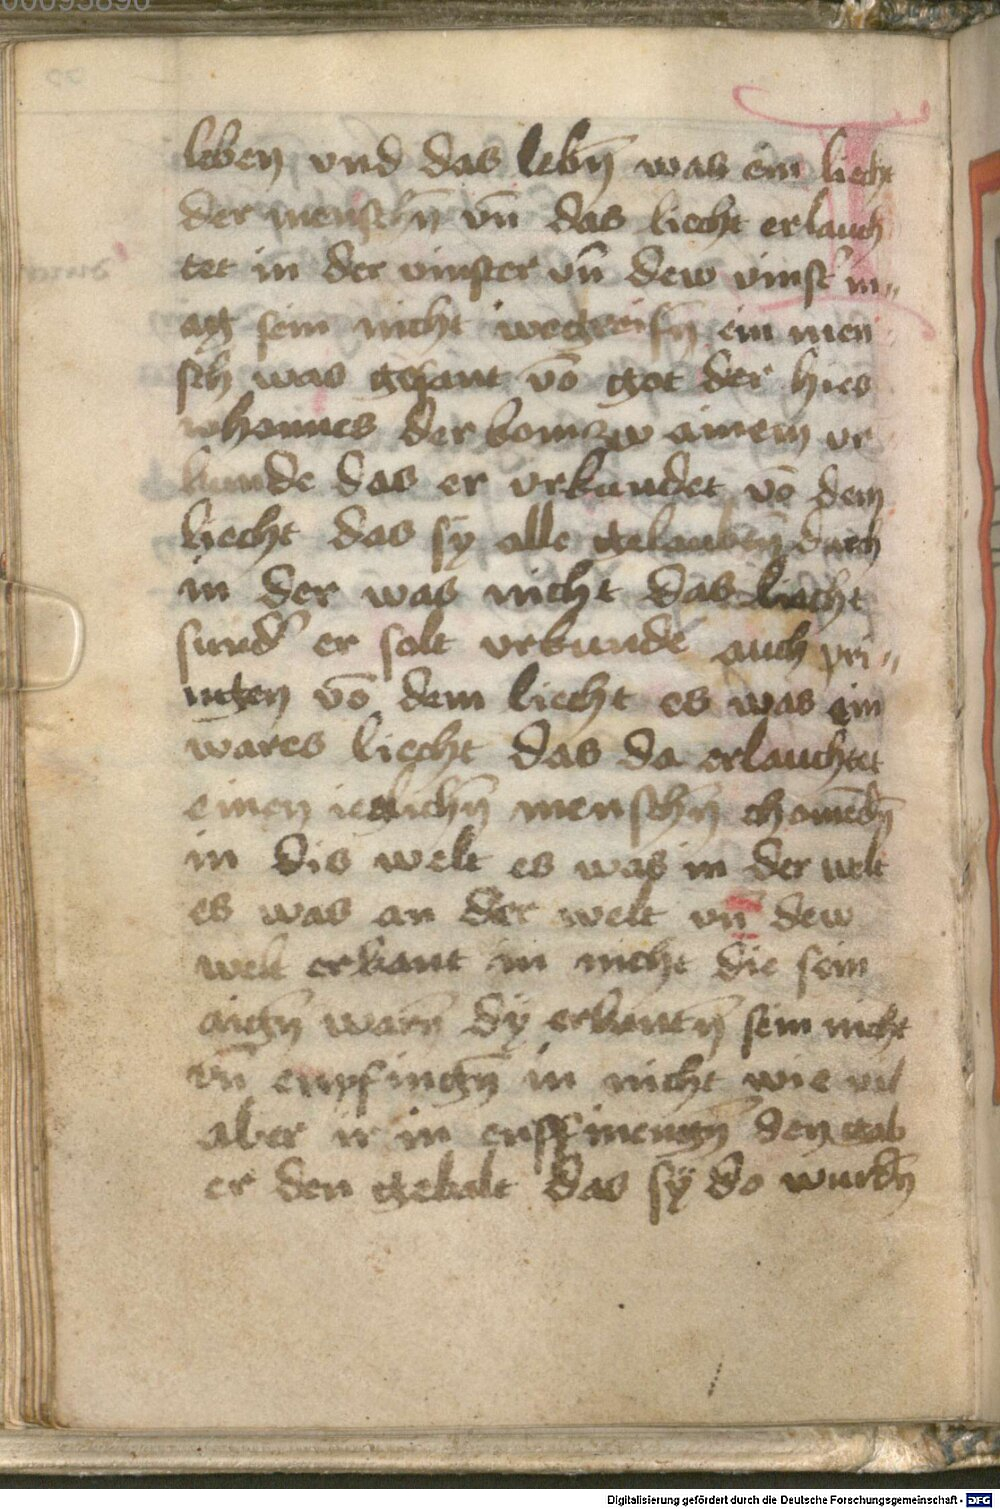 leben vnd das lebn̄ was ein liecht
der menschn̄ vn̄ das liecht erlauch
tet in der vinster vn̄ dew vinst' m„
ag sein nicht wegreifn̄ ein men
sch was gesant vō got der hies
iohannes der kom zw ainem vr
kunde das er vrkundet vō dem
liecht das sy alle gelaubn̄ durch
in der was nicht das liecht
sund' er solt vrkunde auch pri„
ngen vō dem liecht es was ein
wares liecht das da erlauchtet
einen ieglichn̄ menschn̄ chomēdn̄
in dis welt es was in der welt
es was an der welt vn̄ dew
welt erkant in nicht die sein
aign̄ warn̄ dy erkantn̄ sein nicht
vn̄ enpfingn̄ in nicht wie vil
aber ir in den gab
er den gebalt das sÿ do wurdn̄
Digitalisierung gefördert durch die Deutsche Forschungsgemeinschaft - DFG